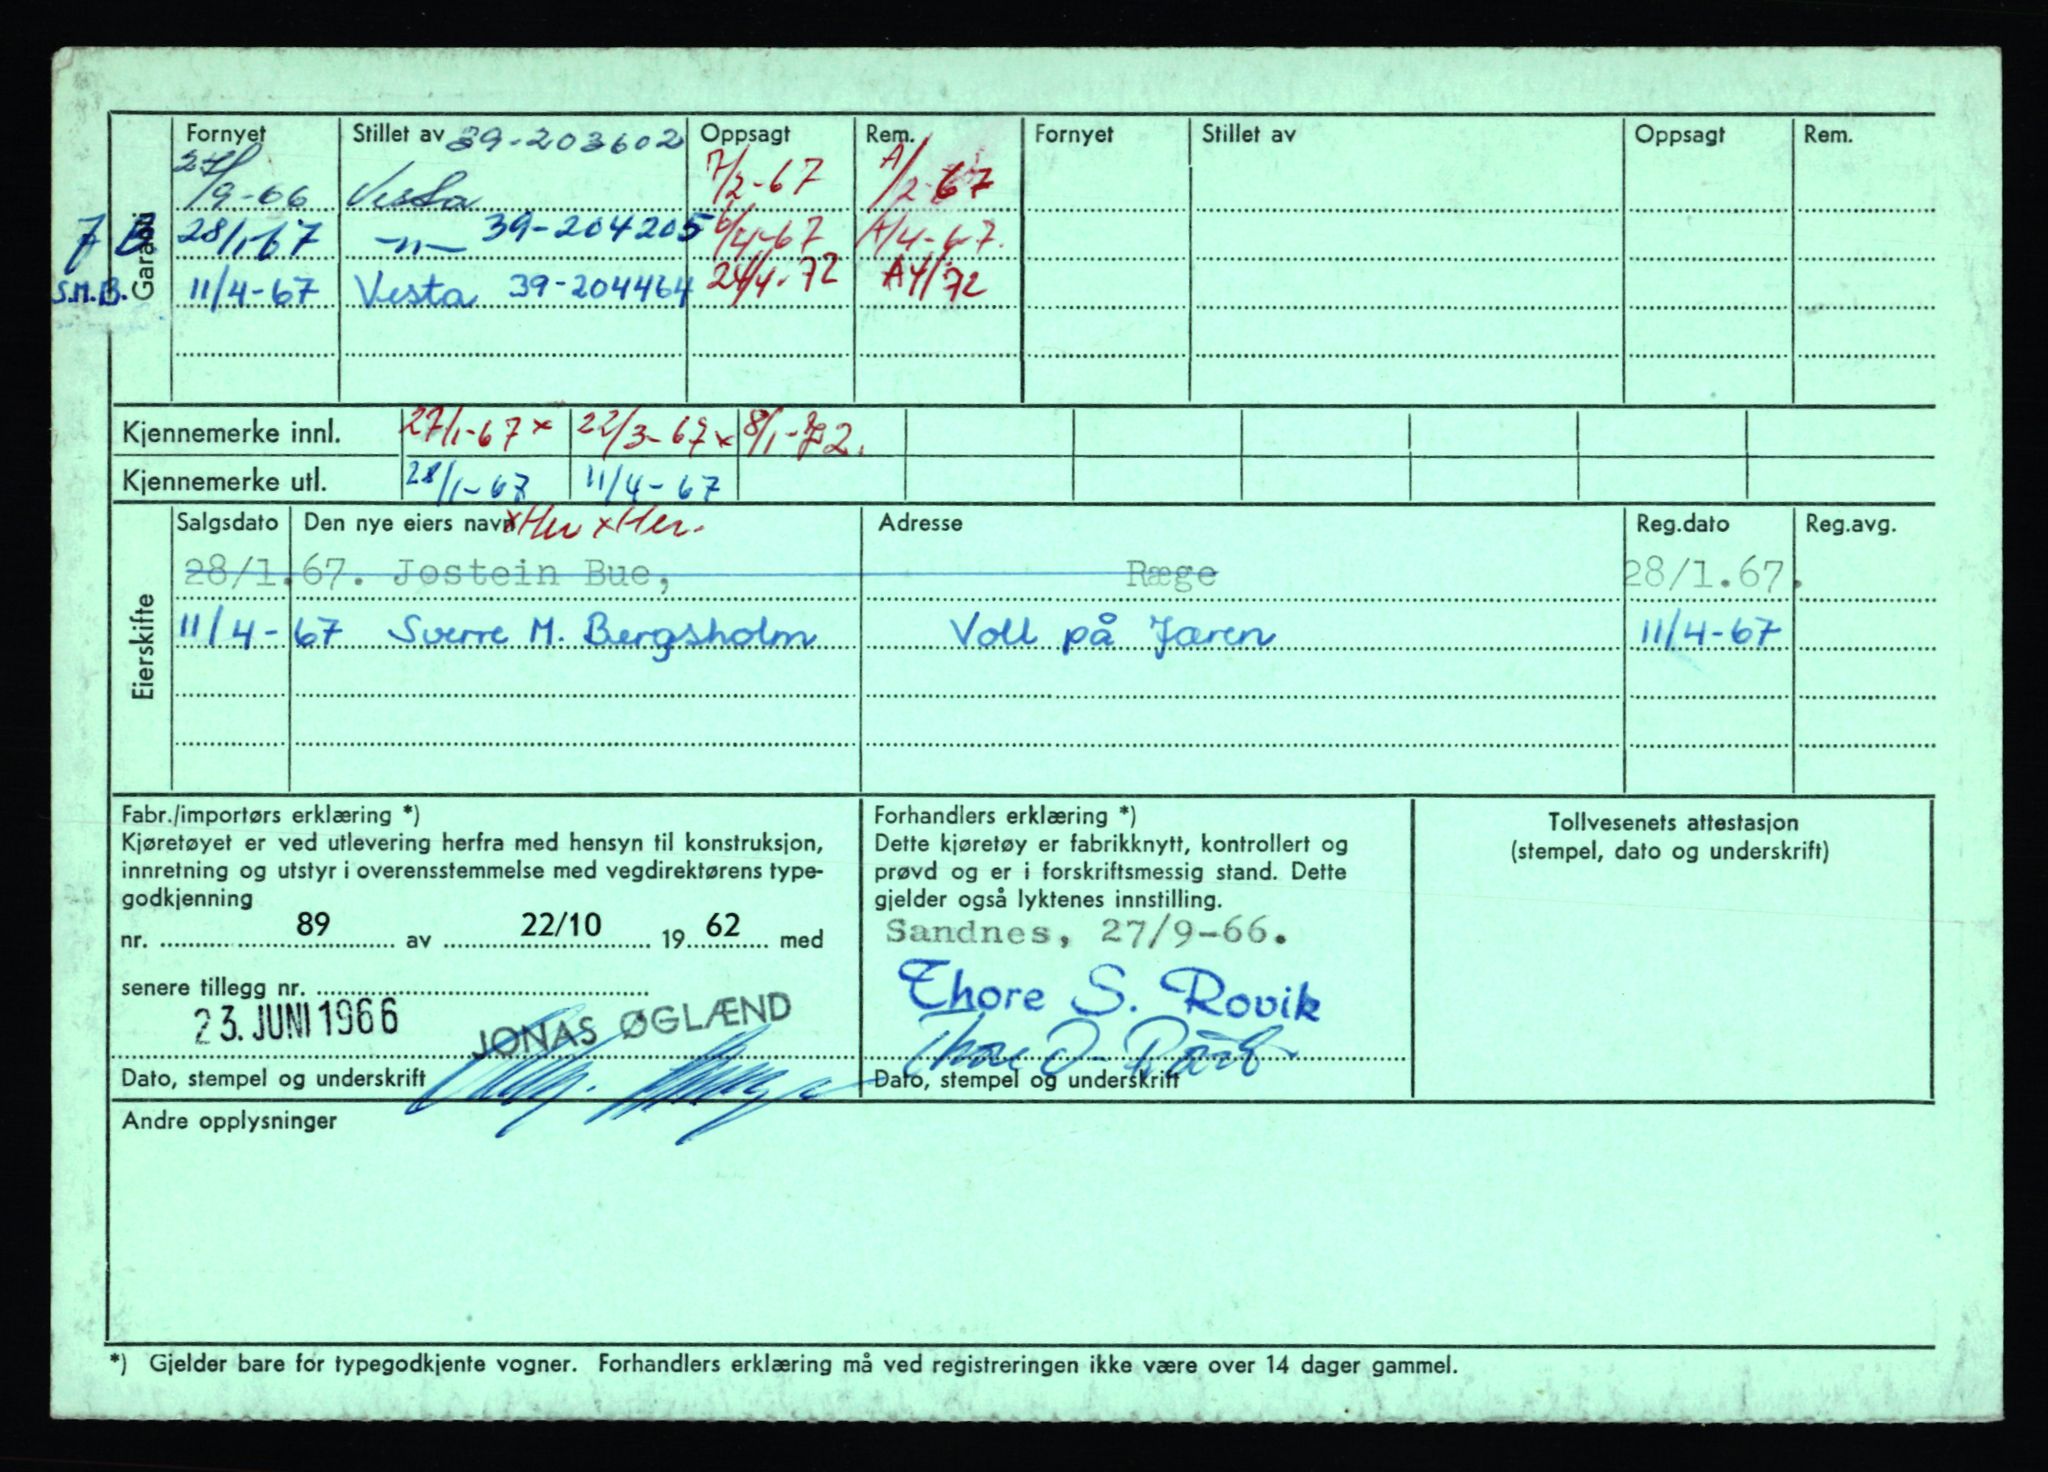 Garanti
Fornyet Stillet av 39-203602 Oppsagt Rem. Fornyet Stillet av Oppsagt Rem.
27/9-66 Vesta 7/2-67 A/2-67
28/1-67 -"- 39-204205 6/4-67 A/4-67.
S.M.B. 11/4-67 Vesta 39-204464 24/4-72 A4/72
Kjennemerke innl. 27/1-67 x 22/3-67 x 8/1-72.
Kjennemerke utl. 28/1-67 11/4-67
Eierskifte
Salgsdato Den nye eiers navn xHer xHer. Adresse Reg.dato Reg.avg.
28/1.67. Jostein Bue, Ræge 28/1.67.
11/4-67 Sverre M. Bergsholm Voll på Jæren 11/4-67
Fabr./importørs erklæring *)
Kjøretøyet er ved utlevering herfra med hensyn til konstruksjon,
innretning og utstyr i overensstemmelse med vegdirektørens type-
godkjenning
nr. 89 av 22/10 19 62 med
senere tillegg nr.
23. JUNI 1966 JONAS ØGLÆND
Dato, stempel og underskrift
Forhandlers erklæring *)
Dette kjøretøy er fabrikknytt, kontrollert og
prøvd og er i forskriftsmessig stand. Dette
gjelder også lyktenes innstilling.
Sandnes, 27/9-66.
Thore S. Rovik
Dato, stempel og underskrift
Tollvesenets attestasjon
(stempel, dato og underskrift)
Andre opplysninger
*) Gjelder bare for typegodkjente vogner. Forhandlers erklæring må ved registreringen ikke være over 14 dager gammel.